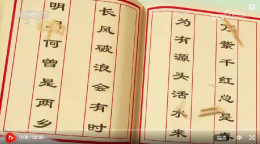 紫千红总是
为有源头活水来
长风破浪会有时
明何曾是两乡